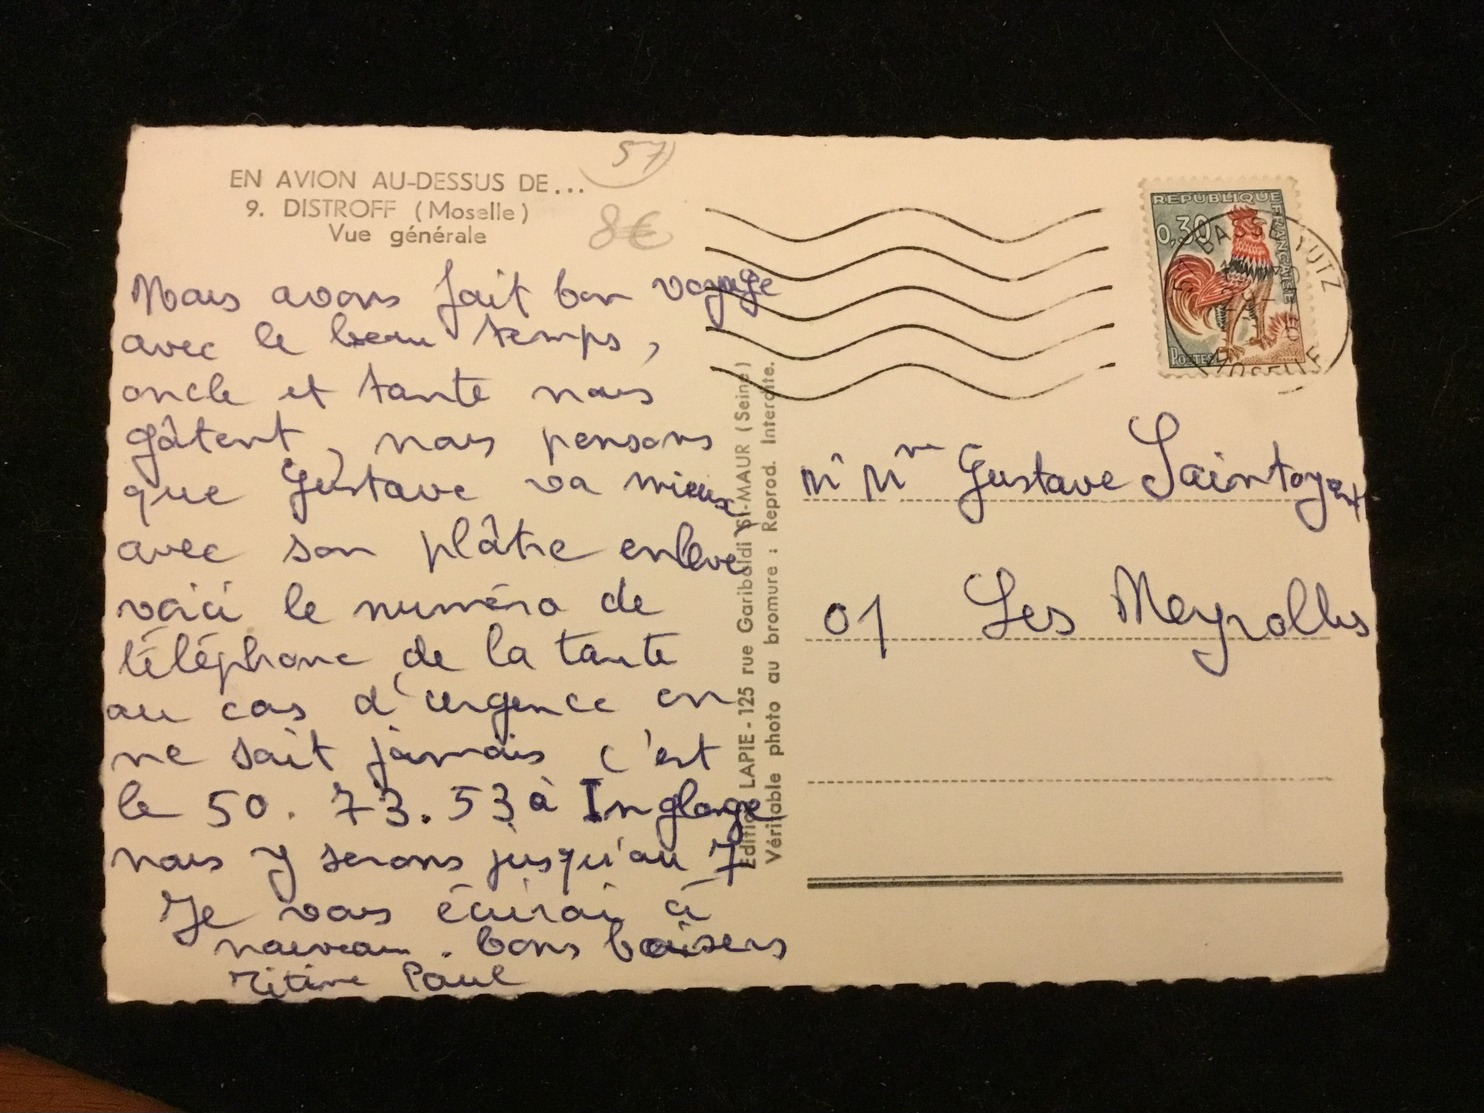 EN AVION AU-DESSUS DE...
9. DISTROFF (Moselle)
Vue générale
57
8€
Nous avons fait bon voyage
avec le beau temps,
oncle et tante nous
gâtent, nous pensons
que Gustave va mieux
avec son plâtre enlevé
voici le numéro de
téléphone de la tante
au cas d'urgence on
ne sait jamais c'est
le 50.73.53 à Inglange
nous y serons jusqu'au 7
Je vous écrirai à
nouveau. bons baisers
Titine Paul
Edition LAPIE - 125 rue Garibaldi St-MAUR (Seine)
Véritable photo au bromure : Reprod. Interdite.
REPUBLIQUE FRANÇAISE
0,30
POSTES
57 BASSE YUTZ
MOSELLE
Mr Mme Gustave Saintoyant
01 Les Meyrolles